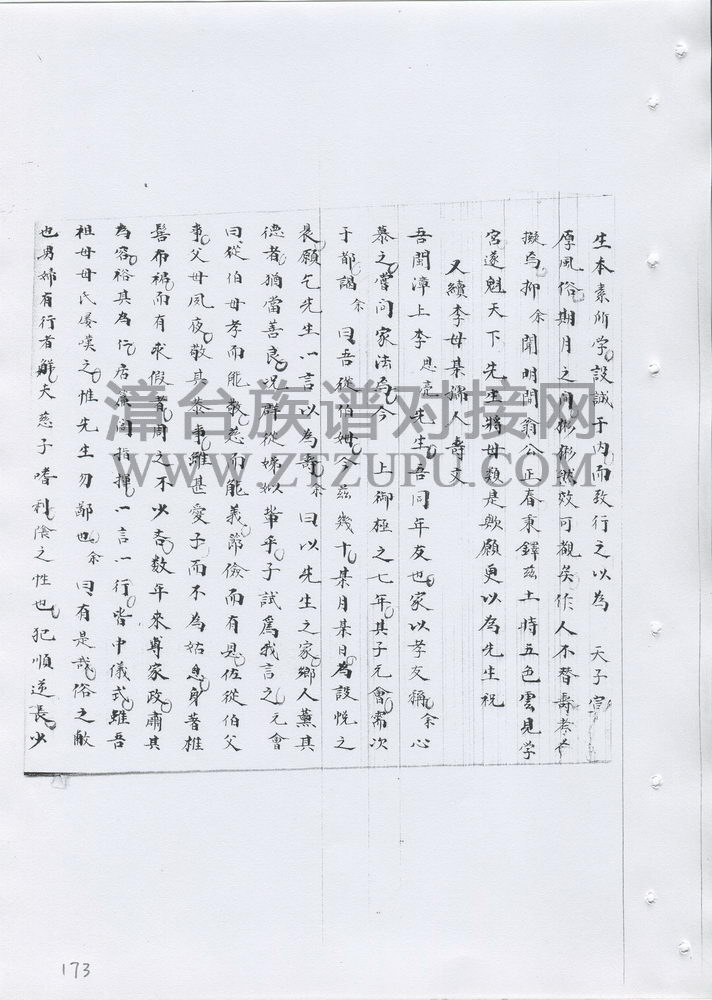 生本素所学設誠于内而致行之以為 天子宣
厚風俗期月之間彬彬然效可觀矣作人不替壽考
擬為抑余聞明閩翁公正春秉鐸兹土時五色雲見学
宮遂魁天下 先生將毋類是歟願更以為先生祝
又續李母某孺人壽文
吾閩漳上李思亮先生吾同年友也家以孝友稱余心
慕之嘗问家法焉今 上御極之七年其子元會需次
于都謁余曰吾從伯姆今兹幾十某月某日為設帨之
晨願乞先生一言以為壽余曰以先生之家鄉人薰其
德者猶當善良况群從娣姒輩乎子試爲我言之元會
曰從伯母孝而能敬慈而能義節儉而有恩佐從伯父
事父母夙夜敬其恭事雖甚愛子而不為姑息身著椎
髻布裙而有求假者周之不少吝数年來專家政肅其
為容裕其為行居闈阃指揮一言一行皆中儀式雖吾
祖母母氏屡嘆之惟先生勿鄙也余曰有是哉俗之敝
也男婦有行者鮮夫慈子嗜利陰之性也犯順逆長少
漳台族谱对接网
WWW.ZTZUPU.COM
173